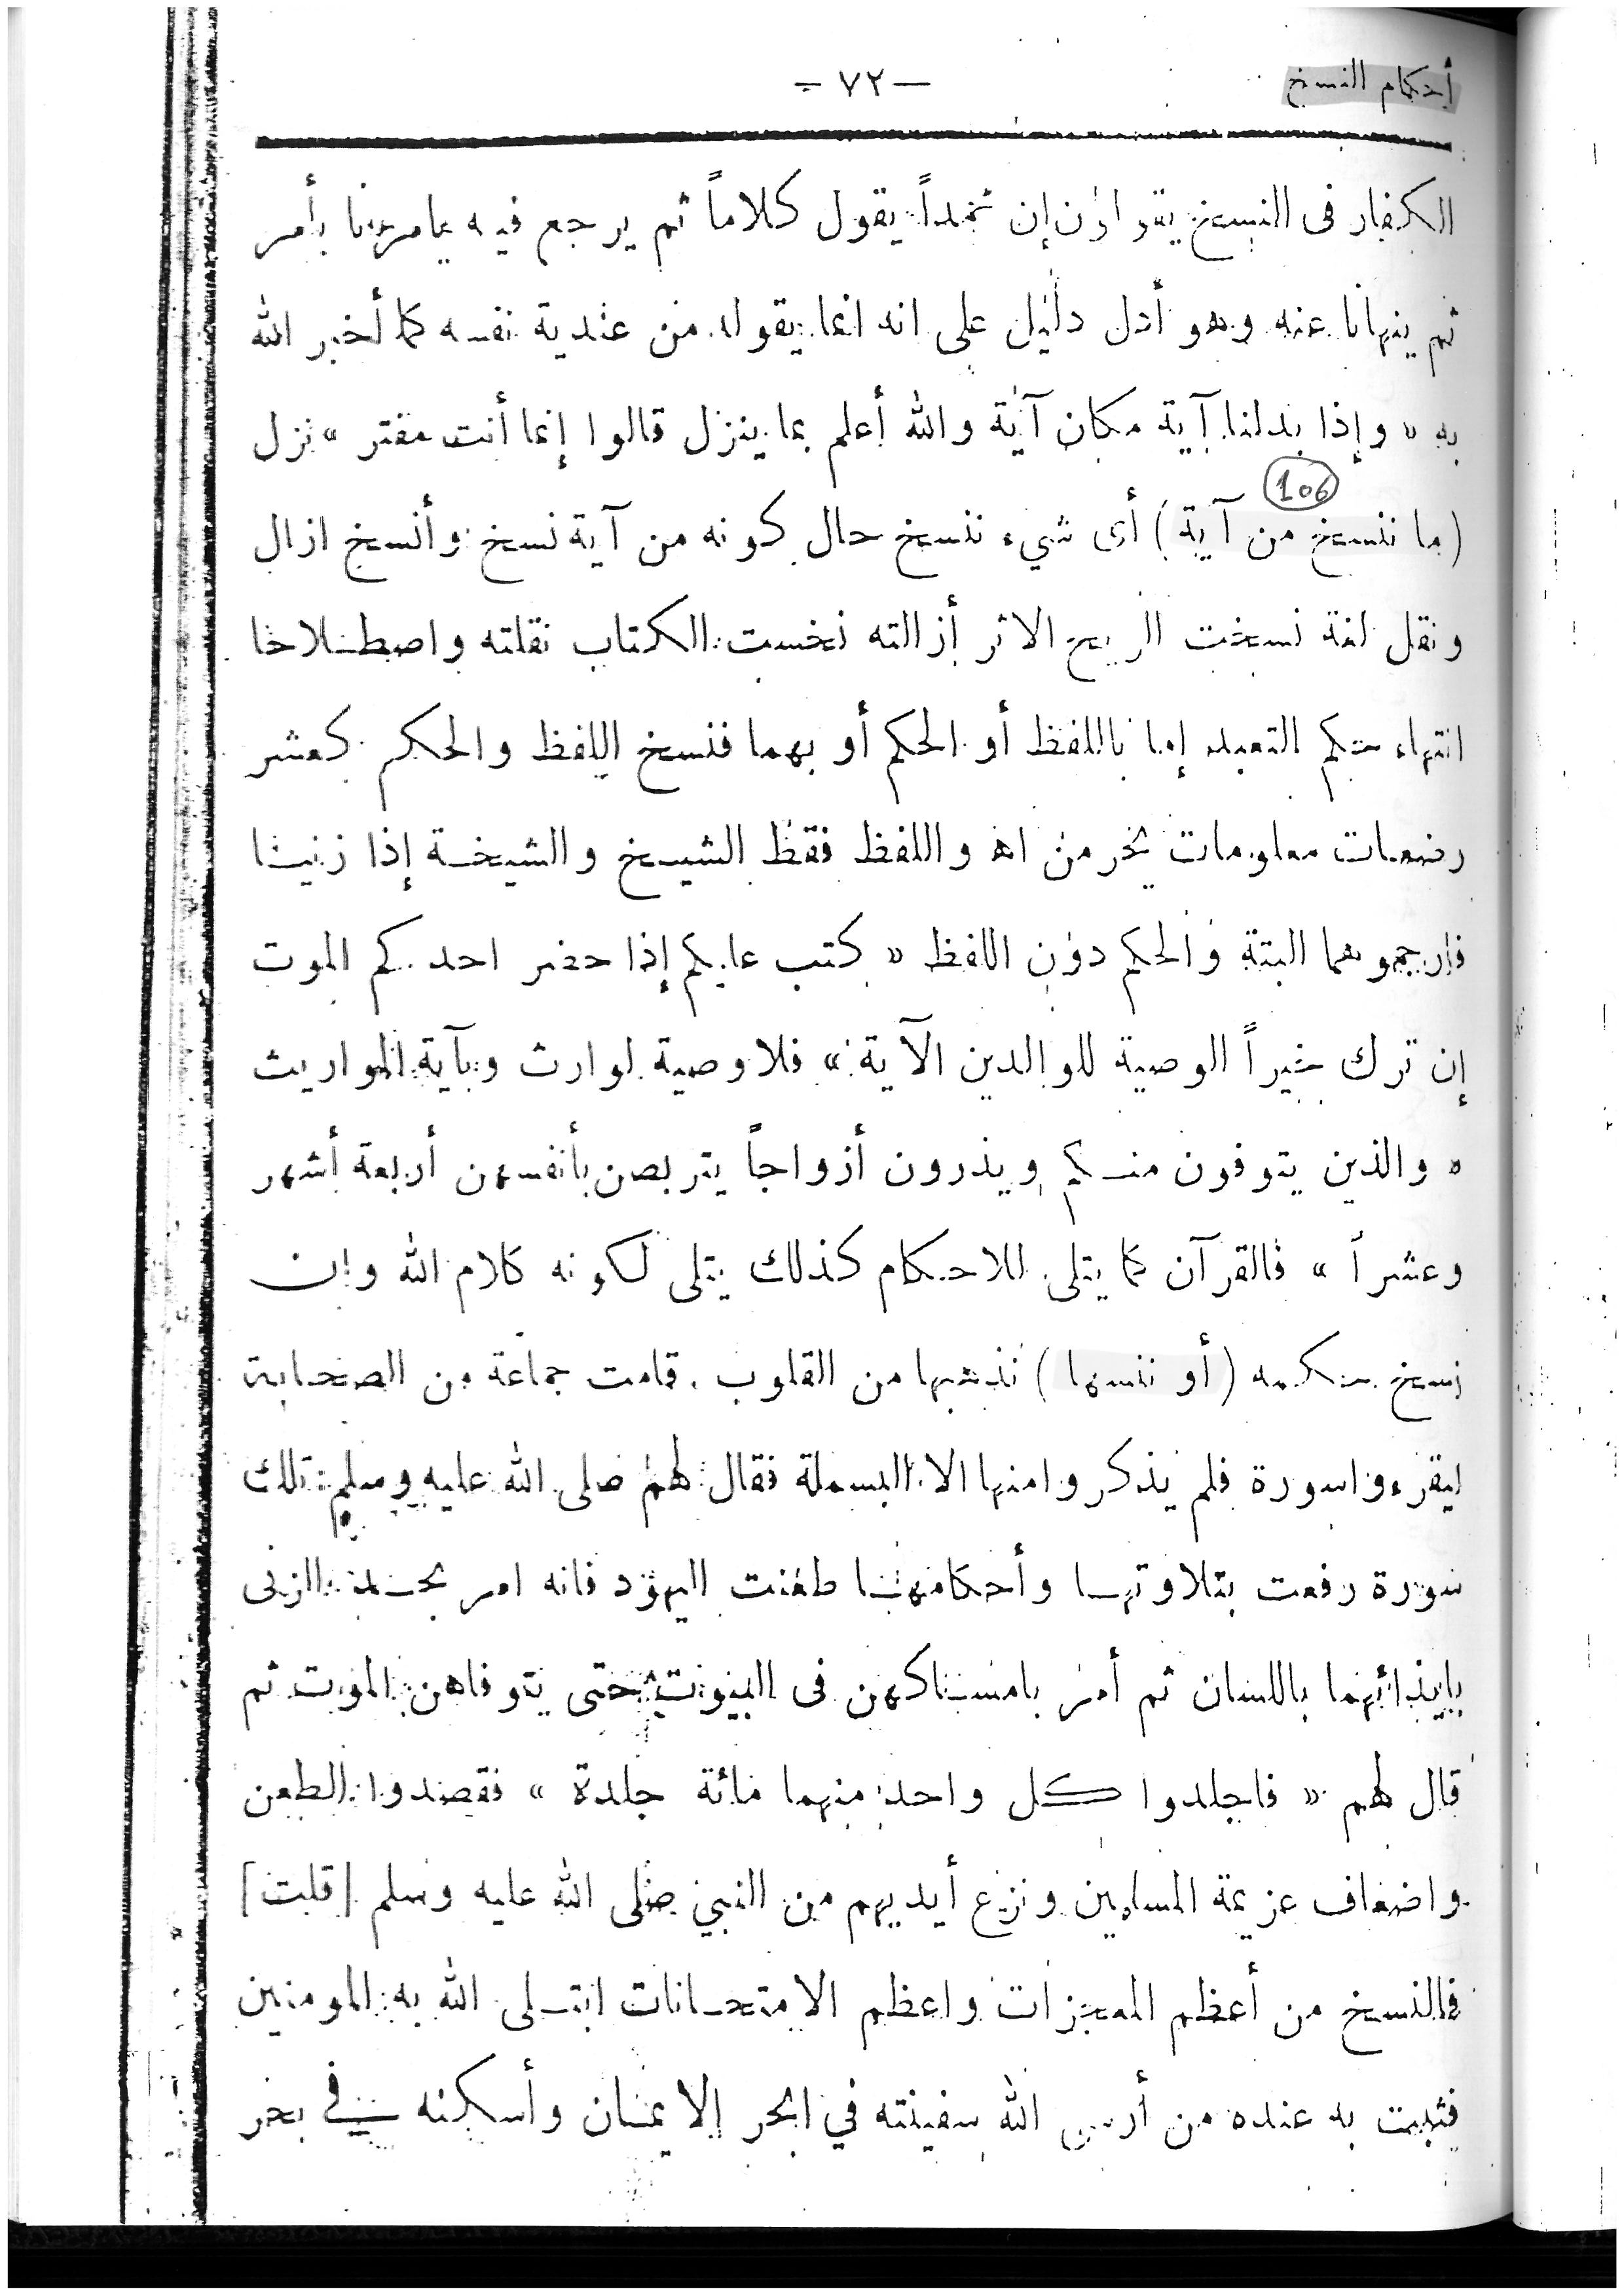 أحكام النسخ
— ٧٢ —
الكفار فى النسخ يقولون إن محمداً يقول كلاماً ثم يرجع فيه يامرنا بأمر
ثم ينهانا عنه وهو أدل دليل على انه انما يقوله من عندية نفسه كما أخبر الله
به « وإذا بدلنا آية مكان آية والله أعلم بما ينزل قالوا إنما أنت مفتر » نزل
106
(ما ننسخ من آية) أى شيء ننسخ حال كونه من آية نسخ وأنسخ ازال
ونقل لغة نسخت الريح الاثر أزالته نخست الكتاب نقلته واصطلاحا
انتهاء حكم التعبد إما باللفظ أو الحكم أو بهما فنسخ اللفظ والحكم كعشر
رضعات معلومات يحرمن اه واللفظ فقط الشيخ والشيخة إذا زنيا
فارجموهما البتة والحكم دون اللفظ « كتب عليكم إذا حضر احدكم الموت
إن ترك خيراً الوصية للوالدين الآية » فلا وصية لوارث وبآية المواريث
« والذين يتوفون منكم ويذرون أزواجاً يتربصن بأنفسهن أربعة أشهر
وعشراً » فالقرآن كما يتلى للاحكام كذلك يتلى لكونه كلام الله وإن
نسخ حكمه (أو ننسها) نذهبها من القلوب . قامت جماعة من الصحابة
ليقرءوا سورة فلم يذكروا منها الا البسملة فقال لهم صلى الله عليه وسلم تلك
سورة رفعت بتلاوتها وأحكامها طعنت اليهود فانه امر بحد الزنى
بإيذائهما باللسان ثم أمر بامساكهن فى البيوت حتى يتوفاهن الموت ثم
قال لهم « فاجلدوا كل واحد منهما مائة جلدة » فقصدوا الطعن
واضعاف عزيمة المسلمين ونزع أيديهم من النبي صلى الله عليه وسلم [قلت]
فالنسخ من أعظم المعجزات واعظم الامتحانات ابتلى الله به المومنين
فثبت به عنده من أرسى الله سفينته في ابحر الايمان وأسكنه في بحر